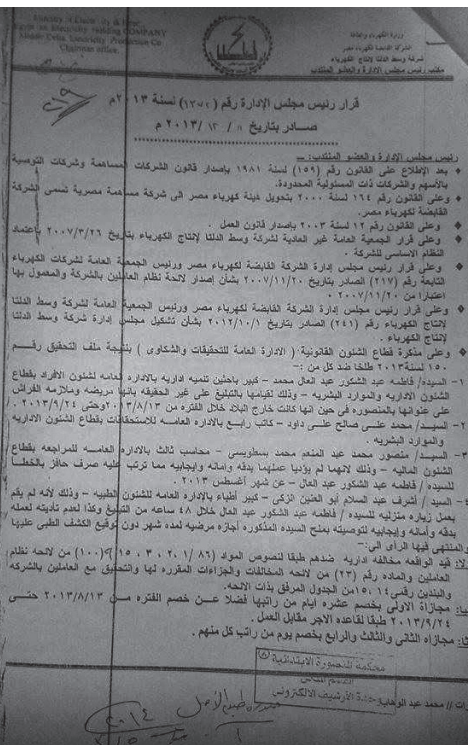 Ministry of Electricity & Energy
Egyptian Electricity Holding COMPANY
Middle Delta Electricity Production Co
Chairman office
وزارة الكهرباء والطاقة
الشركة القابضة لكهرباء مصر
شركة وسط الدلتا لإنتاج الكهرباء
مكتب رئيس مجلس الإدارة والعضو المنتدب
قرار رئيس مجلس الإدارة رقم (١٣٥٢) لسنة ٢٠١٣م
صادر بتاريخ / ١٢ / ٢٠١٣ م
رئيس مجلس الإدارة والعضو المنتدب:
بعد الإطلاع على القانون رقم (١٥٩) لسنة ١٩٨١ بإصدار قانون الشركات المساهمة وشركات التوصية
بالأسهم والشركات ذات المسئولية المحدودة.
وعلى القانون رقم ١٦٤ لسنة ٢٠٠٠ بتحويل هيئة كهرباء مصر الى شركة مساهمة مصرية تسمى الشركة
القابضة لكهرباء مصر.
وعلى القانون رقم ١٢ لسنة ٢٠٠٣ بإصدار قانون العمل .
وعلى قرار الجمعية العامة غير العادية لشركة وسط الدلتا لإنتاج الكهرباء بتاريخ ٢٠٠٧/٣/٢٦ بإعتماد
النظام الاساسى للشركة .
وعلى قرار رئيس مجلس إدارة الشركة القابضة لكهرباء مصر ورئيس الجمعية العامة لشركات الكهرباء
التابعة رقم (٢١٧) الصادر بتاريخ ٢٠٠٧/١١/٢٠ بشأن إصدار لائحة نظام العاملين بالشركة والمعمول بها
اعتبارا من ٢٠٠٧/١١/٢٠ .
وعلى قرار رئيس مجلس إدارة الشركة القابضة لكهرباء مصر ورئيس الجمعية العامة لشركة وسط الدلتا
لإنتاج الكهرباء رقم (٢٤١) الصادر بتاريخ ٢٠١٢/١٠/١ بشأن تشكيل مجلس إدارة شركة وسط الدلتا
لإنتاج الكهرباء .
وعلى مذكرة قطاع الشئون القانونية ( الادارة العامة للتحقيقات والشكاوى ) بنتيجة ملف التحقيق رقم
١٥٠ لسنة ٢٠١٣ طلخا ضد كل من :-
١- السيده/ فاطمه عبد الشكور عبد العال محمد – كبير باحثين تنميه اداريه بالاداره العامه لشئون الأفراد بقطاع
الشئون الاداريه والموارد البشريه – وذلك لقيامها بالتبليغ على غير الحقيقه بانها مريضه وملازمه الفراش
على عنوانها بالمنصوره فى حين انها كانت خارج البلاد خلال الفتره من ٢٠١٣/٨/١٣ وحتى ٢٠١٣/٩/٢٤ .
٢- السيد/ محمد على صالح على داود – كاتب رابع بالاداره العامه للاستحقاقات بقطاع الشئون الاداريه
والموارد البشريه .
٣- السيد/ منصور محمد عبد المنعم محمد بسطويسى – محاسب ثالث بالاداره العامه للمراجعه بقطاع
الشئون الماليه – وذلك لانهما لم يؤديا عملهما بدقه وأمانه وايجابيه مما ترتب عليه صرف حافز بالخطأ
للسيده/ فاطمه عبد الشكور عبد العال – عن شهر أغسطس ٢٠١٣ .
٤- السيد/ أشرف عبد السلام أبو العنين الزكى – كبير أطباء بالاداره العامه للشئون الطبيه – وذلك لأنه لم يقم
بعمل زياره منزليه للسيده / فاطمه عبد الشكور عبد العال خلال ٤٨ ساعه من التبليغ وكذا لعدم تأديته لعمله
بدقه وأمانه وايجابيه لتوصيته بمنح السيده المذكوره أجازه مرضيه لمده شهر دون توقيع الكشف الطبى عليها
والمنتهى فيها الرأى الى:-
قيد الواقعه مخالفه اداريه ضدهم طبقا لنصوص المواد
(١٠٠) من لائحه نظام
العاملين والماده رقم (٢٣) من لائحه المخالفات والجزاءات المقرره لها والتحقيق مع العاملين بالشركه
والبندين رقمى ١٤ ، ١٥ من الجدول المرفق بذات الائحه.
مجازاة الاولى بخصم عشره ايام من راتبها فضلا عن خصم الفتره من ٢٠١٣/٨/١٣ حتى
٢٠١٣/٩/٢٤ طبقا لقاعده الاجر مقابل العمل .
مجازاه الثانى والثالث والرابع بخصم يوم من راتب كل منهم .
محكمه المنصورة الابتدائية
وحدة الأرشيف الالكترونى
محمد عبد الوهاب
صورة طبق الأصل